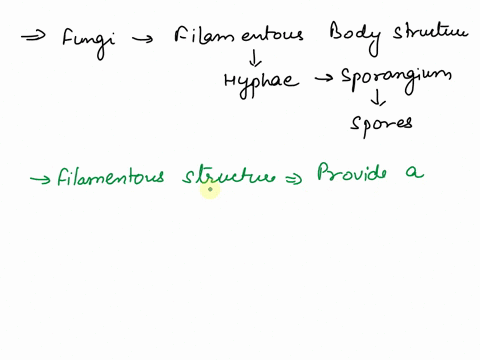 ⇒ Fungi → Filamentous Body structure
↓
Hyphae → Sporangium
↓
Spores
→ Filamentous structure ⇒ Provide a